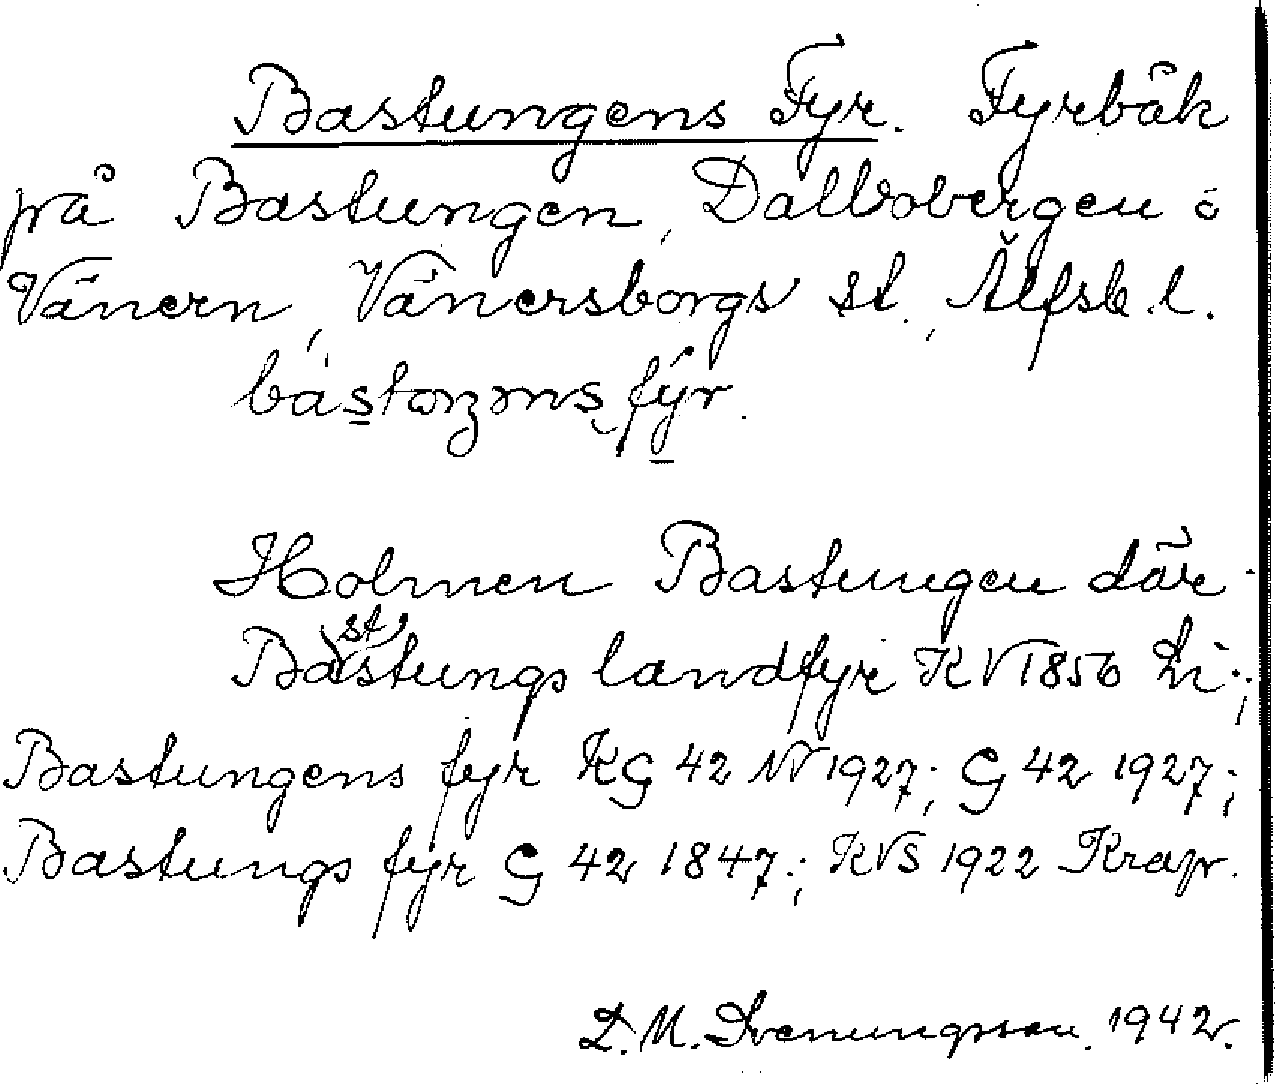 Bastungens Fyr. Fyrbåk
på Bastungen, Dalbobergen i
Vänern, Vänersborgs st., Älfsb. l.
Holmen Bastungen där
Bastungs landfyr KV 1856
Bastungens fyr KG 42 NV 1927; G 42 1927;
Bastungs fyr G 42 1847; KVS 1922 Krap.
D. M. 1942.